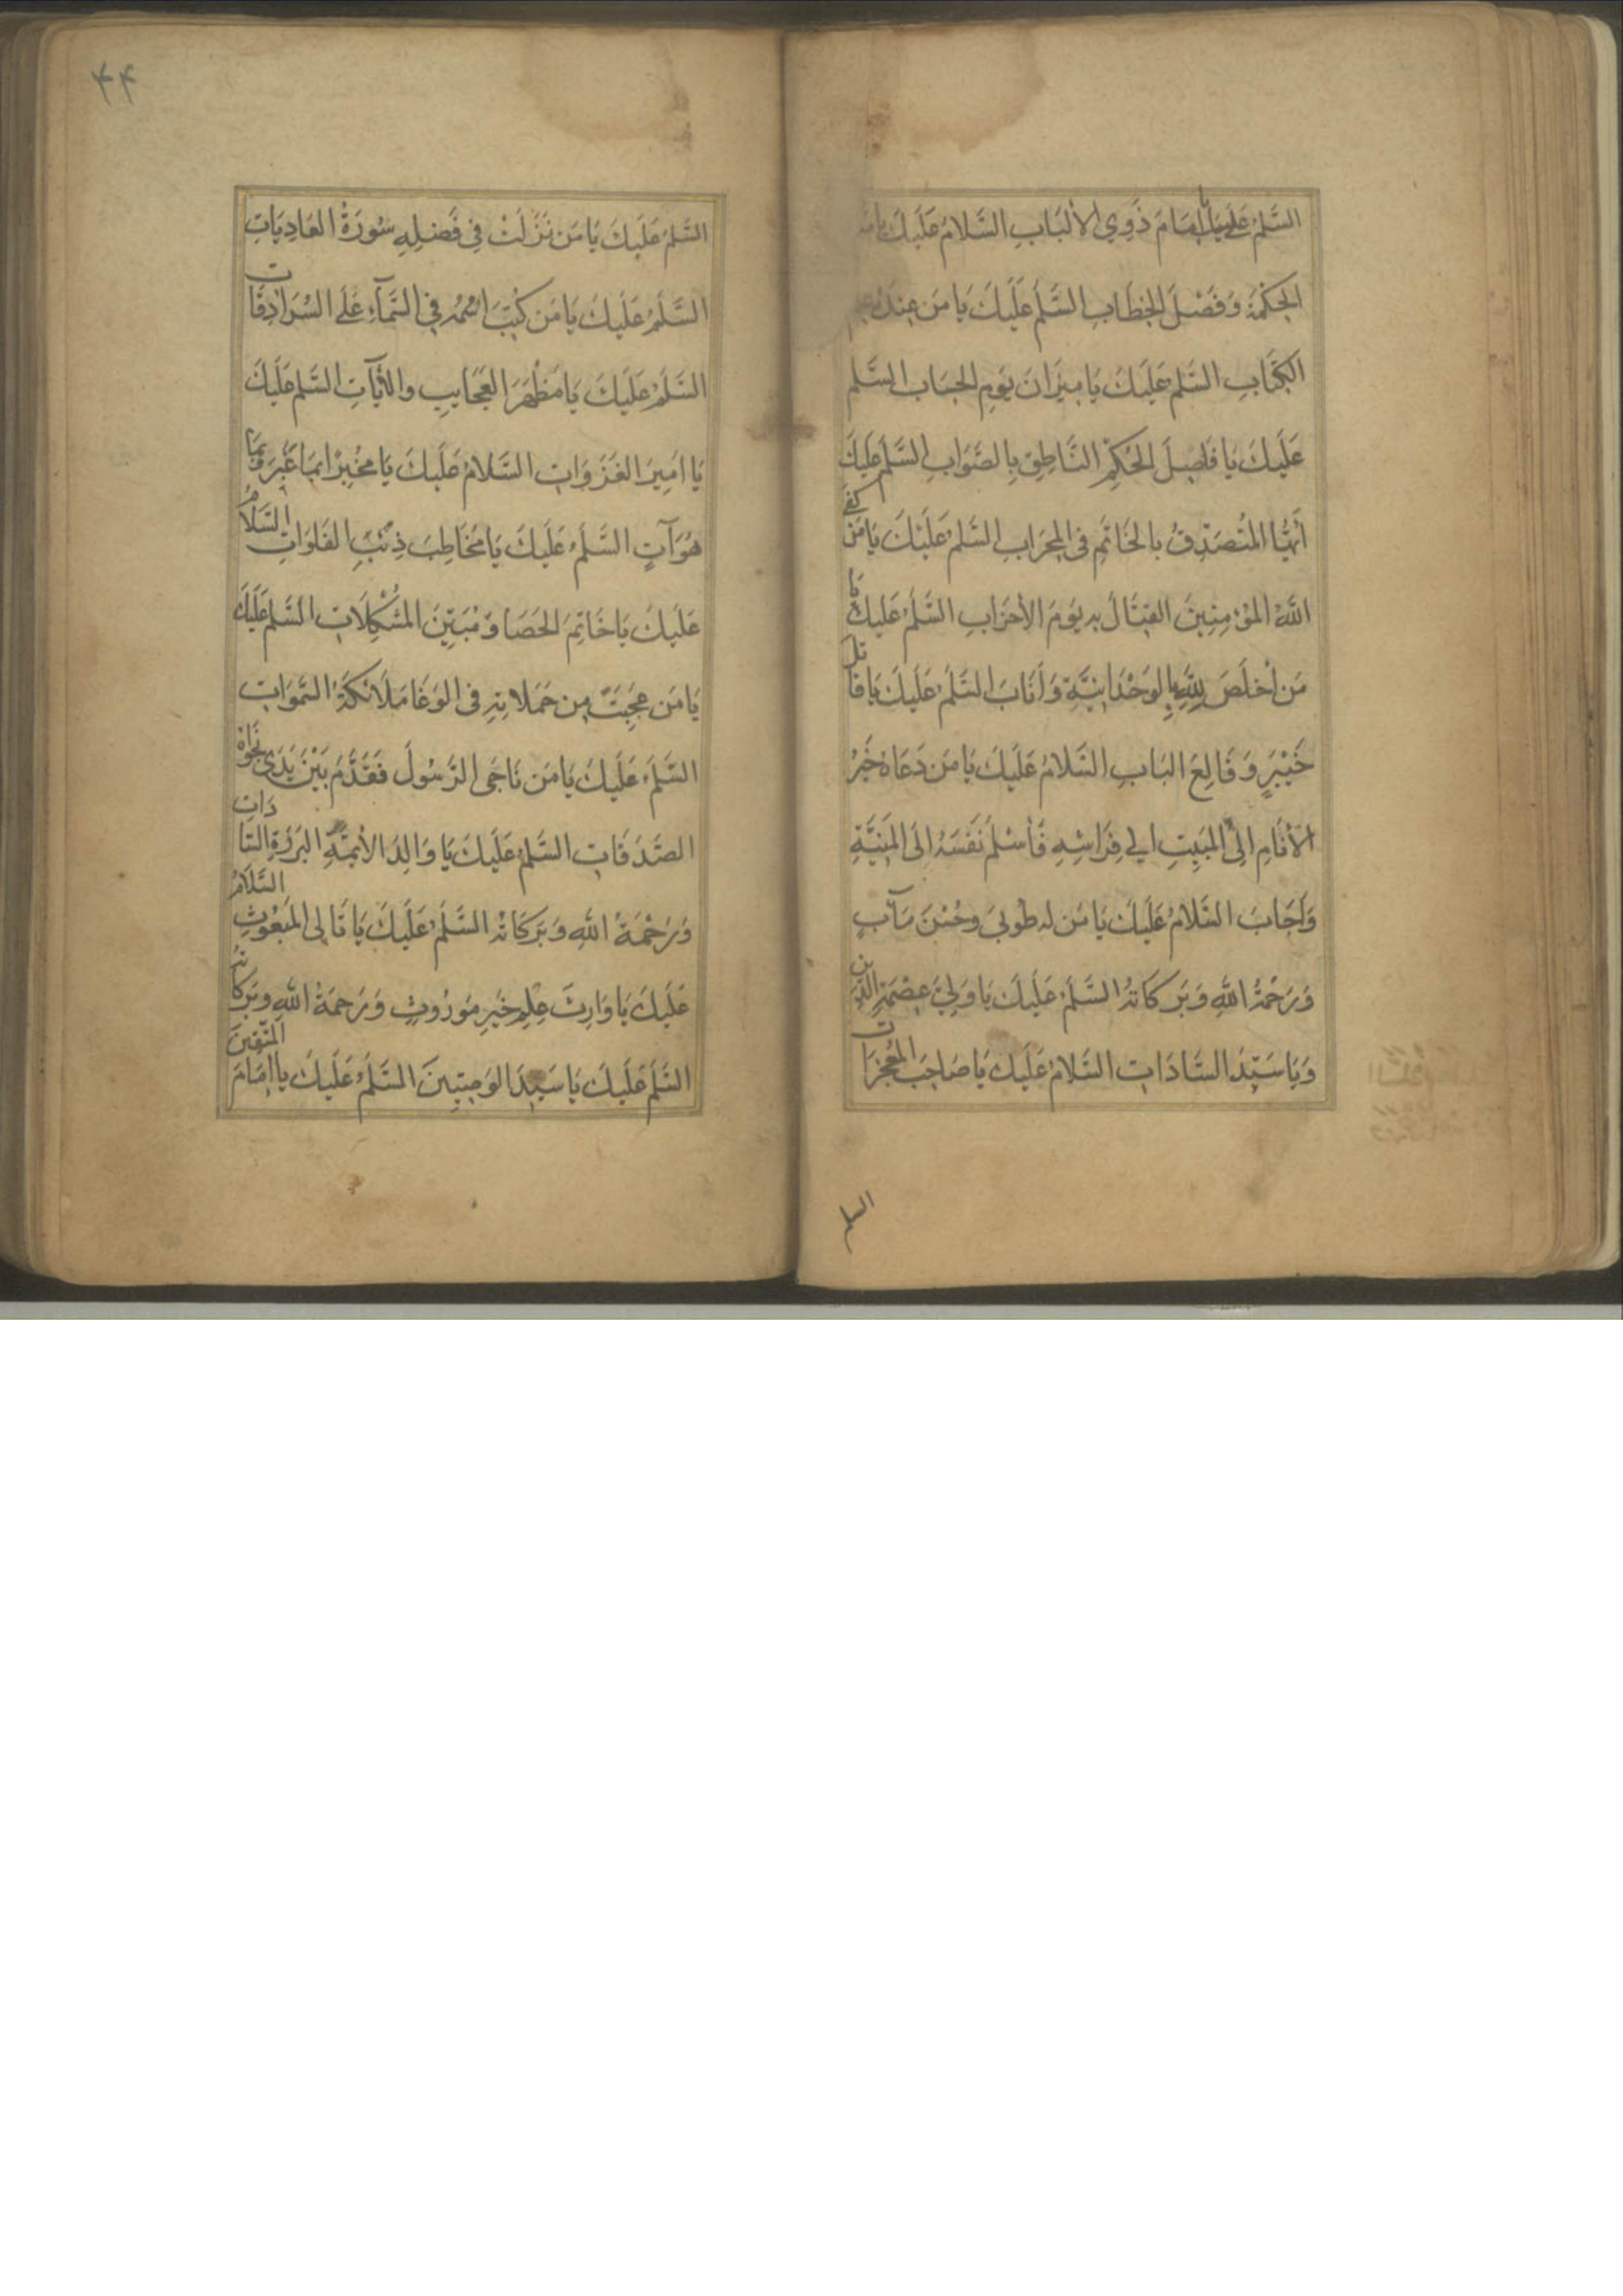 السَّلمُ عَلَيكَ يا اِمَامَ ذَوِي الاَلْبَابِ السَّلامُ عَلَيكَ يامَن
الحِكْمَةَ وَفَصْلَ الخِطَابِ السَّلَمُ عَلَيكَ يَا مَن عِندَهُ
الكِتَابِ السَّلمُ عَلَيكَ يَا مِيزَانَ يَومِ الحِسَابِ السَّلم
عَلَيكَ يَا فَاصِلَ الحُكْمِ النَّاطِقِ بِالصَّوَابِ السَّلمُ عَلَيكَ
أَيُّهَا المُتَصَدِّقُ بِالخَاتَمِ فِي المِحرَابِ السَّلمُ عَلَيْكَ يَا مَن كَفَى
اللهُ المُؤْمِنِينَ القِتَالَ بِهِ يَومَ الاَحزَابِ السَّلَمُ عَلَيكَ يَا
مَن أَخلَصَ لِلّهِ الوَحْدَانِيَّةِ وَاَنَابَ السَّلَمُ عَلَيكَ يَا قَاتِلَ
خَيْبَرٍ وَقَالِعَ البَابِ السَّلَامُ عَلَيكَ يَا مَن دَعَاهُ خَيرُ
الاَنَامِ اِلَى المَبِيتِ اِلى فِرَاشِهِ فَأَسْلَمَ نَفسَهُ اِلَى المَنِيَّةِ
وَاَجَابَ السَّلامُ عَلَيكَ يَا مَن لَه طُوبىَ وحُسْنَ مَآبٍ
وَرَحْمَةُ اللهِ وَبَركَاتهُ السَّلَمُ عَلَيكَ يَا وَلِيَّ عِصْمَةِ الدِّينِ
وَيَا سَيِّدَ السَّادَاتِ السَّلَامُ عَلَيكَ يَا صَاحِبَ المُعْجِزَاتِ
السلم
۴۴
السَّلمُ عَلَيكَ يَا مَن نَزَلَتْ فِي فَضلِهِ سُورَةُ العَادِيَاتِ
السَّلَمُ عَلَيكَ يَا مَن كُتِبَ اسْمُهُ فِي السَّمَآءِ عَلَى السُّرَادِقَاتِ
السَّلَمُ عَلَيكَ يَا مَظْهَرَ العَجَايبِ والاٰيَاتِ السَّلم عَلَيكَ
يَا اَمِيرَ الغَزَوَاتِ السَّلامُ عَلَيكَ يَا مُخْبِرًا بِمَا غَبَرَ وَبِمَا
هُوَآتٍ السَّلَمُ عَلَيكَ يَا مُخَاطِبَ ذِئبِ الفَلَوَاتِ السَّلَامُ
عَلَيكَ يَا خَاتِمَ الحَصَا وَمُبَيِّنَ المُشْكِلَاتِ السَّلم عَلَيكَ
يَا مَن عَجِبَتْ مِن حَمَلاتِهِ فِي الوَغَا مَلَائِكَةُ السَّموَاتِ
السَّلَمُ عَلَيكَ يَا مَن نَاجَى الرَّسُولَ فَقَدَّمَ بَيْنَ يَدَي نَجْوَاهُ
الصَّدَقَاتِ السَّلَمُ عَلَيكَ يَا وَالِدَ الاَئِمَّةِ البَرَرَةِ السَّادَاتِ
وَرَحْمَةُ اللهِ وَبَرَكَاتهُ السَّلَمُ عَلَيكَ يَا تَالِى المَبعُوثِ السَّلَامُ
عَلَيكَ يَا وَارِثَ عِلمِ خَيرِ مَورُوثٍ وَرَحمَةُ اللهِ وبَركَاتهُ
السَّلَمُ عَلَيكَ يَا سَيِّدَ الوَصِيِّينَ السَّلَمُ عَلَيكَ يَا اِمَامَ المُتَّقِينَ